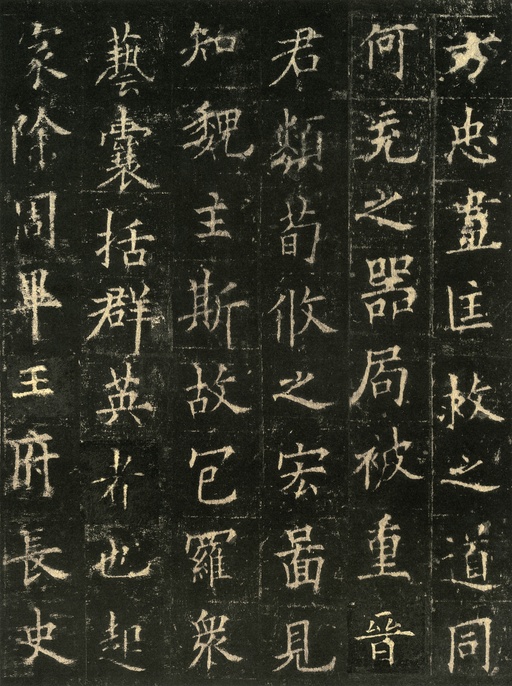 方忠蓋匡救之道同
何充之器局被重晉
君類荀攸之宏啚見
知魏主斯故包羅衆
藝囊括群英者也起
家除周畢王府長史